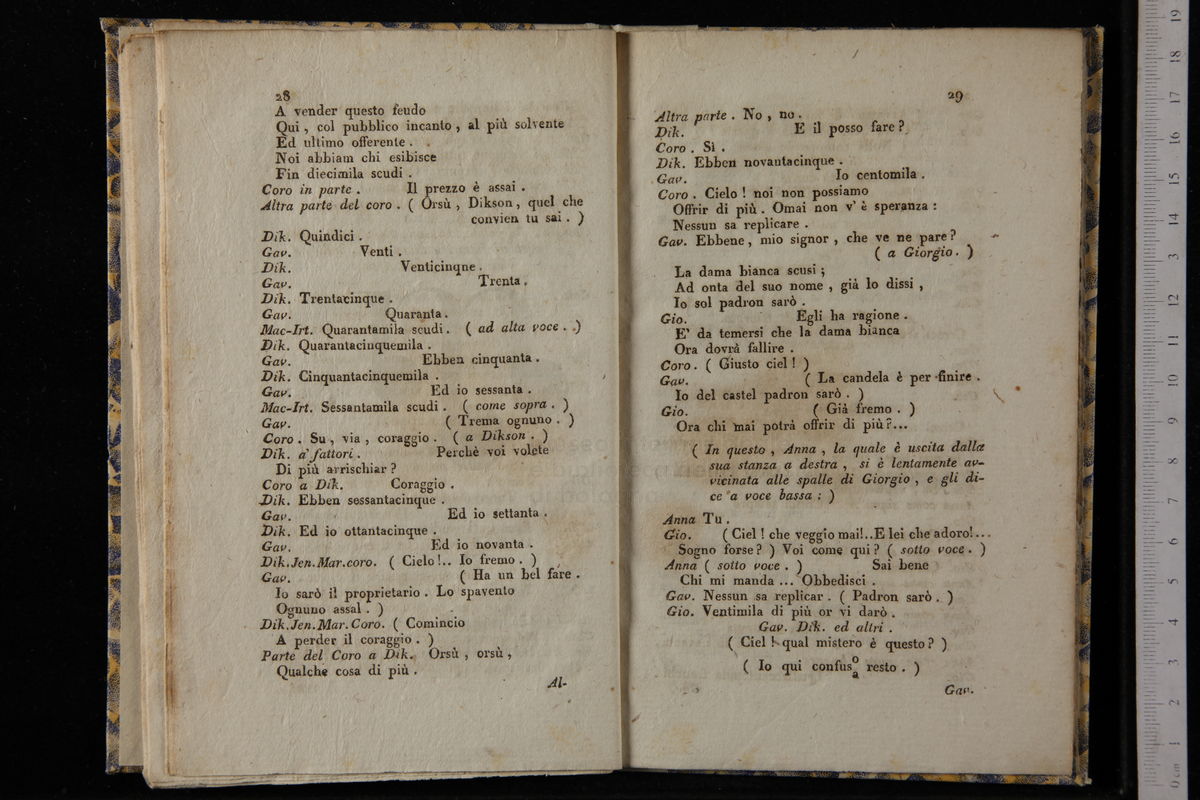 28
A vender questo feudo
Qui , col pubblico incanto , al più solvente
Ed ultimo offerente .
Noi abbiam chi esibisce
Fin diecimila scudi .
Coro in parte . Il prezzo è assai .
Altra parte del coro . ( Orsù , Dikson, quel che
convien tu sai . )
Dik. Quindici .
Gav. Venti .
Dik. Venticinque .
Gav. Trenta .
Dik. Trentacinque .
Gav. Quaranta .
Mac-Irt. Quarantamila scudi . ( ad alta voce . )
Dik. Quarantacinquemila .
Gav. Ebben cinquanta .
Dik. Cinquantacinquemila .
Gav. Ed io sessanta .
Mac-Irt. Sessantamila scudi . ( come sopra . )
Gav. ( Trema ognuno . )
Coro . Su , via , coraggio . ( a Dikson . )
Dik. a' fattori . Perchè voi volete
Di più arrischiar ?
Coro a Dik. Coraggio .
Dik. Ebben sessantacinque .
Gav. Ed io settanta .
Dik. Ed io ottantacinque .
Gav. Ed io novanta .
Dik.Jen.Mar.coro. ( Cielo !.. Io fremo . )
Gav. ( Ha un bel fare .
Io sarò il proprietario . Lo spavento
Ognuno assal . )
Dik.Jen.Mar.Coro. ( Comincio
A perder il coraggio . )
Parte del Coro a Dik. Orsù , orsù ,
Qualche cosa di più .
Al-
29
Altra parte . No , no .
Dik. E il posso fare ?
Coro . Sì .
Dik. Ebben novantacinque .
Gav. Io centomila .
Coro . Cielo ! noi non possiamo
Offrir di più . Omai non v' è speranza :
Nessun sa replicare .
Gav. Ebbene , mio signor , che ve ne pare ?
( a Giorgio . )
La dama bianca scusi ;
Ad onta del suo nome , già lo dissi ,
Io sol padron sarò .
Gio. Egli ha ragione .
E' da temersi che la dama bianca
Ora dovrà fallire .
Coro . ( Giusto ciel ! )
Gav. ( La candela è per finire .
Io del castel padron sarò . )
Gio. ( Già fremo . )
Ora chi mai potrà offrir di più ?...
( In questo , Anna , la quale è uscita dalla
sua stanza a destra , si è lentamente av-
vicinata alle spalle di Giorgio , e gli di-
ce a voce bassa : )
Anna Tu .
Gio. ( Ciel ! che veggio mai!..E lei che adoro!...
Sogno forse ? ) Voi come qui ? ( sotto voce . )
Anna ( sotto voce . ) Sai bene
Chi mi manda ... Obbedisci .
Gav. Nessun sa replicar . ( Padron sarò . )
Gio. Ventimila di più or vi darò .
Gav. Dik. ed altri .
( Ciel ! qual mistero è questo ? )
( Io qui confus o/a resto . )
Gav.